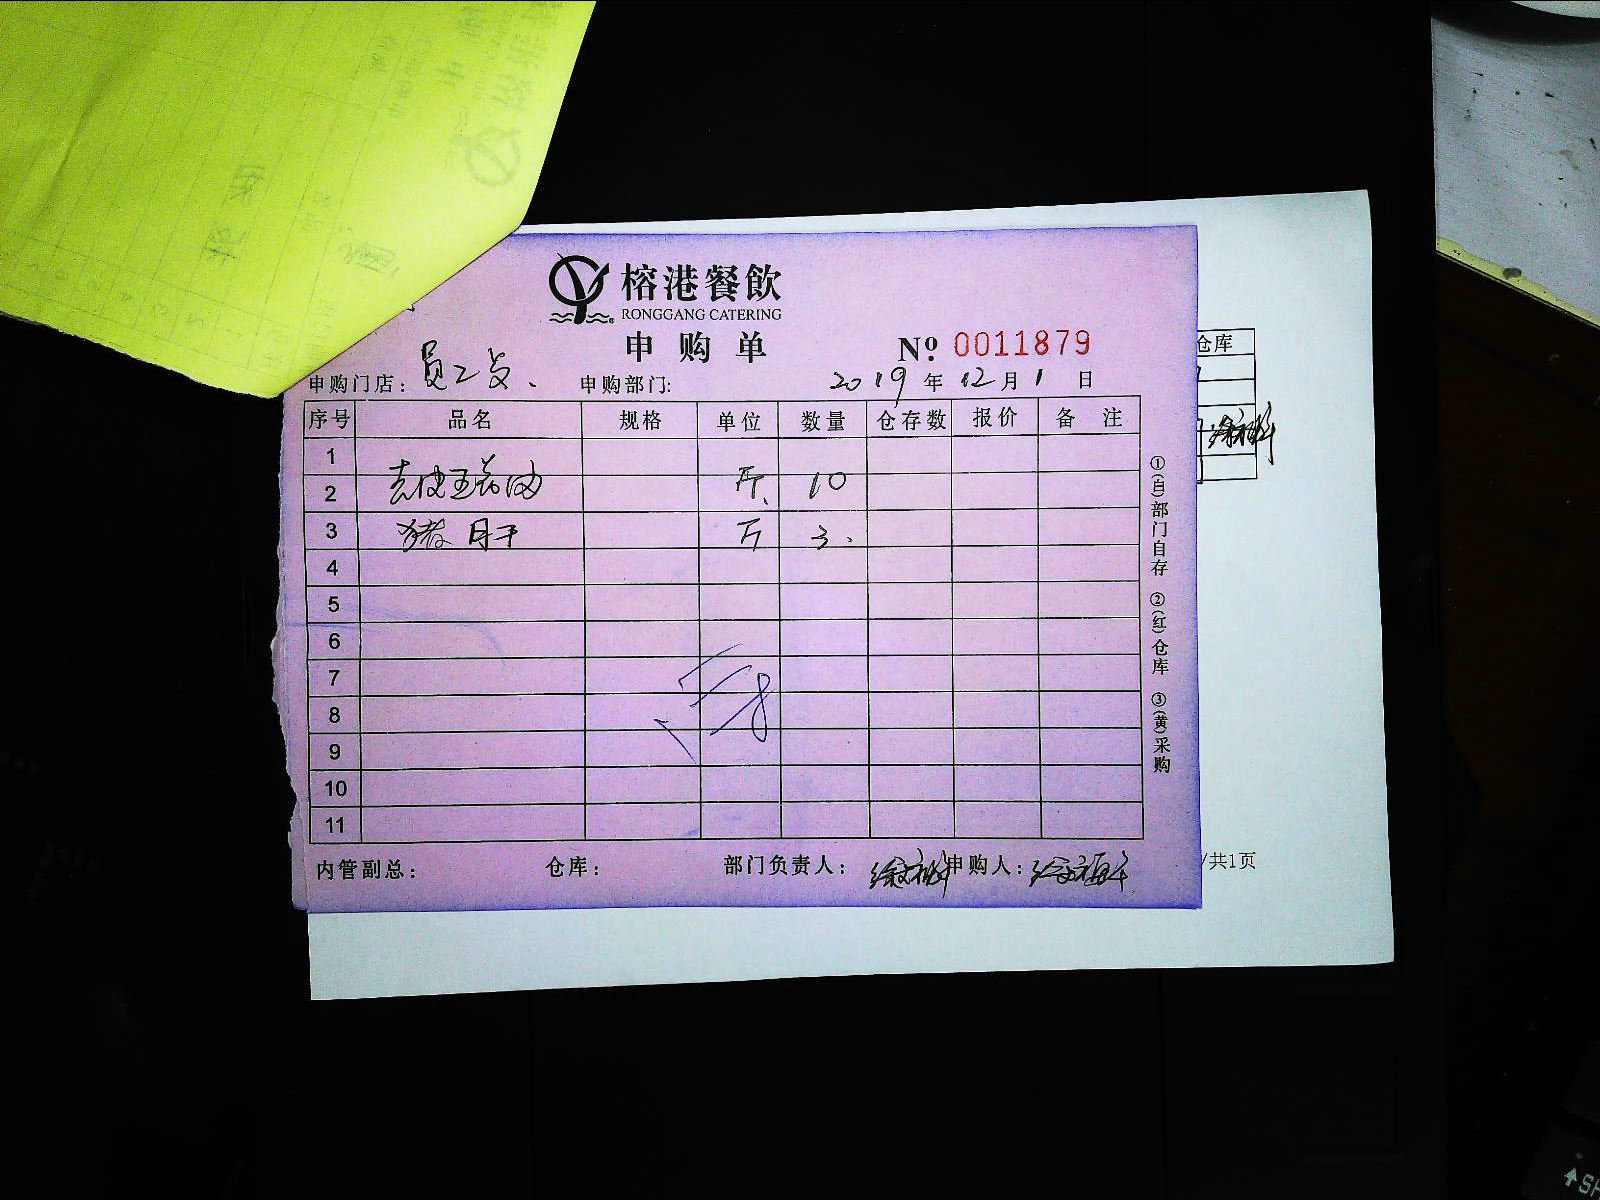 榕港餐飲
RONGGANG CATERING
申购单 Nº 0011879
申购门店: 员工 申购部门: 2019年12月1日
序号 品名 规格 单位 数量 仓存数 报价 备注
1
2 去皮五花肉 斤 10
3 猪肝 斤 3
4
5
6
7
8
9
10
11
内管副总: 仓库: 部门负责人: 申购人:
①(白)部门自存 ②(红)仓库 ③(黄)采购
仓库
/共1页